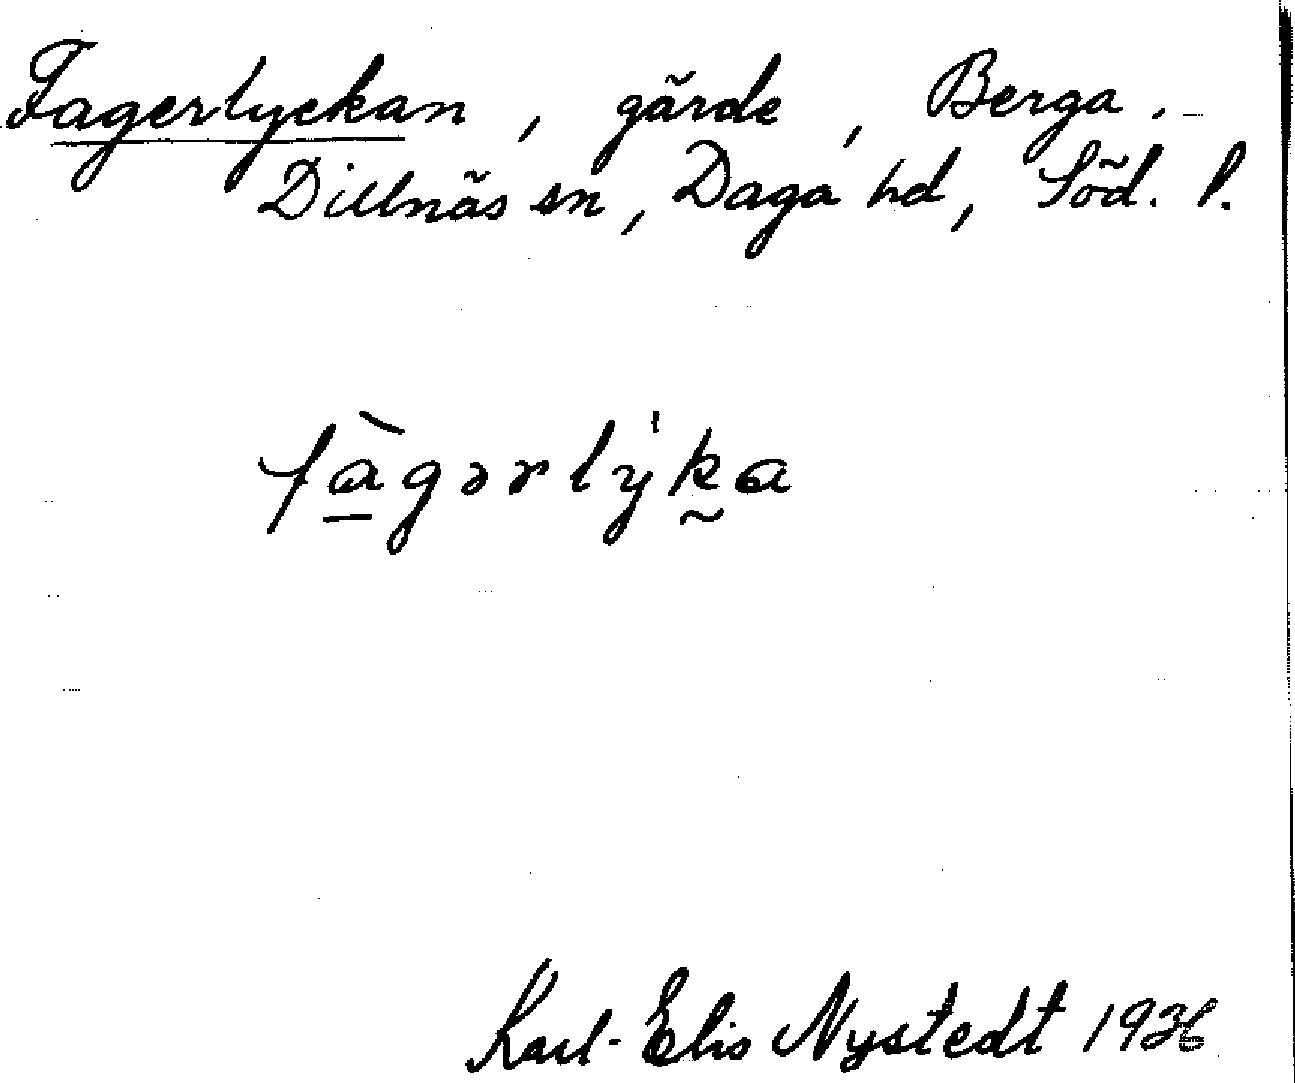 Fagerlyckan, gärde, Berga.
Dillnäs sn, Daga hd, Söd. l.
fàgərlyˈka
Karl-Elis Nystedt 1936